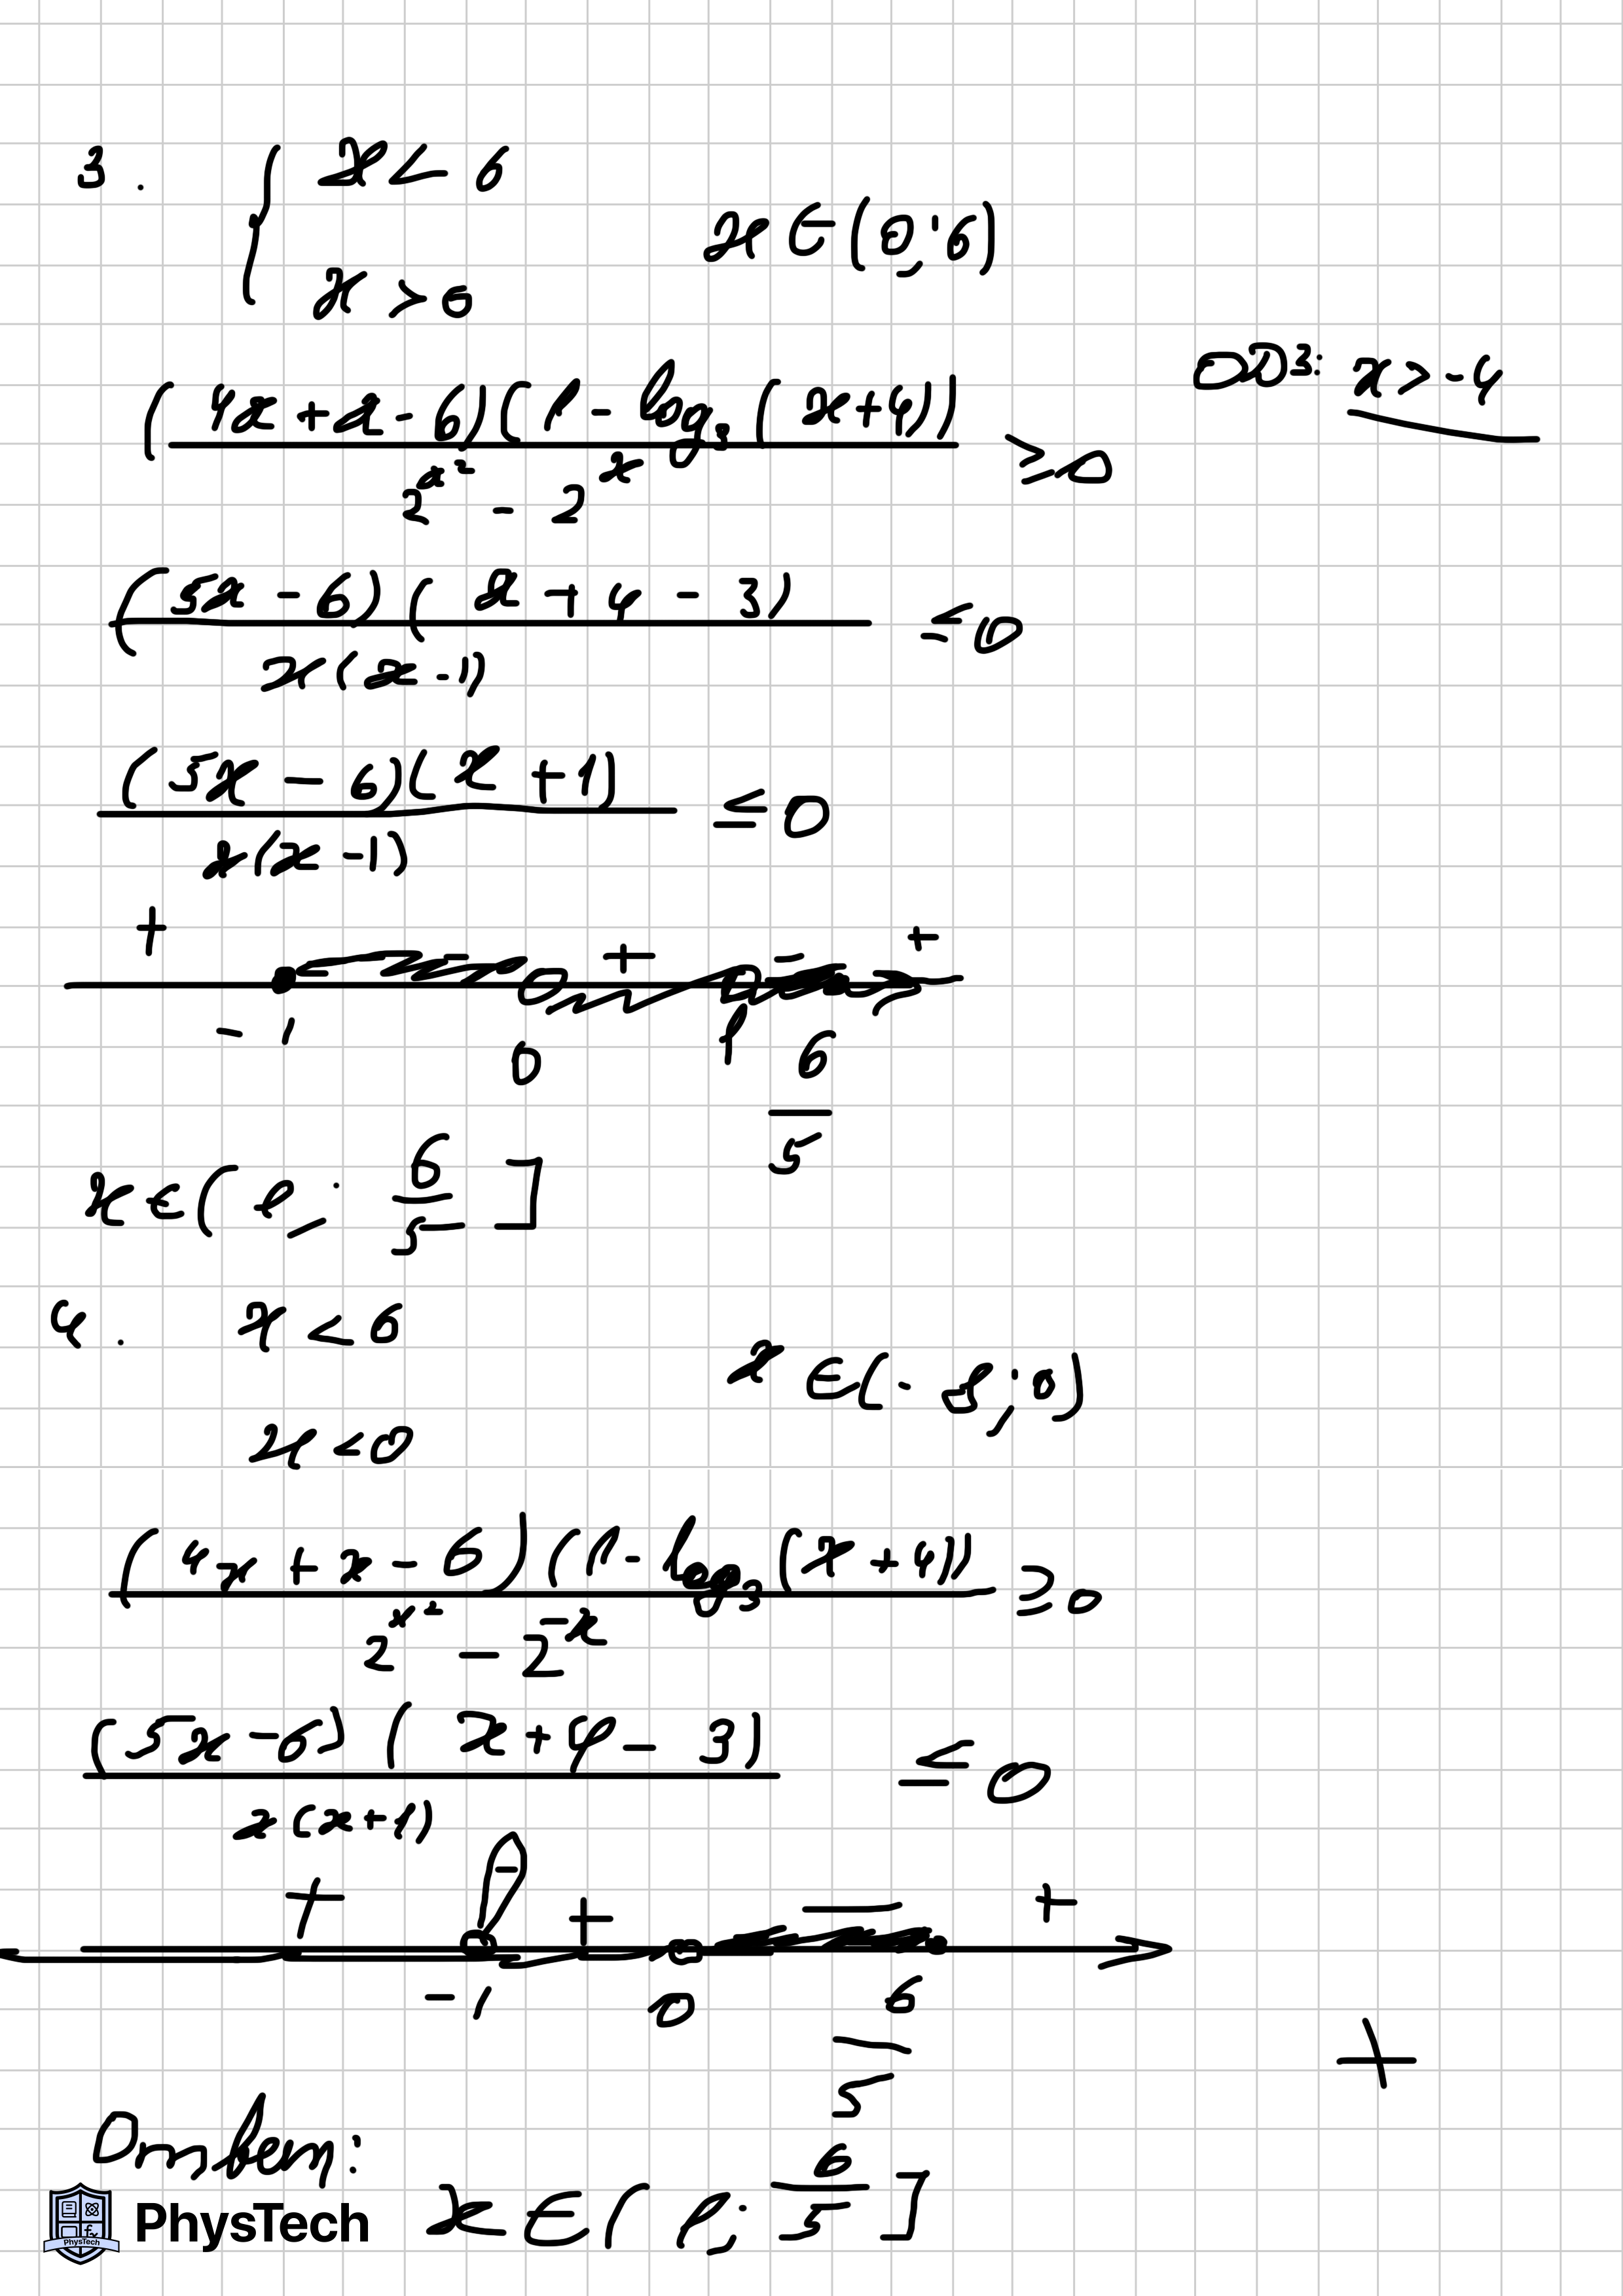 3. { x < 6
x > 0
x ∈ (0; 6)
ОДЗ: x > -4
(4x + x - 6)(1 - log₃(x+4)) / (2^(x²) - 2^x) ≥ 0
(5x - 6)(x + 4 - 3) / (x(x - 1)) ≤ 0
(5x - 6)(x + 1) / (x(x - 1)) ≤ 0
+ - + - +
-1 0 1 6/5
x ∈ (1; 6/5]
4. x < 6
x < 0
x ∈ (-∞; 0)
(4x + x - 6)(1 - log₃(x + 4)) / (2^(x²) - 2^(-x)) ≥ 0
(5x - 6)(x + 4 - 3) / (x(x + 1)) ≤ 0
+ - + - +
-1 0 6/5
+
Ответ:
x ∈ (1; 6/5]
PhysTech
PhysTech